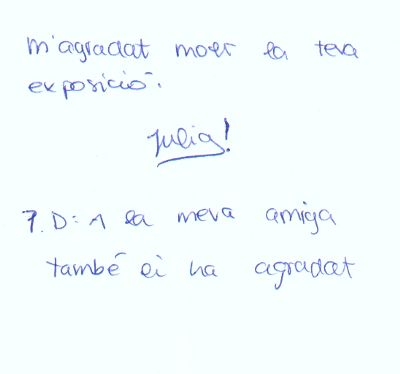 m'agradat moer la teva
exposició.
Julia!
P.D: A la meva amiga
també ei ha agradat